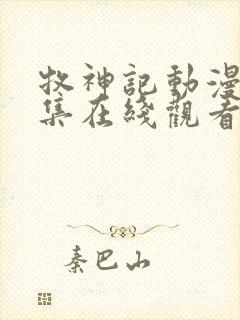 牧神記動漫
集在綫觀看
秦巴山